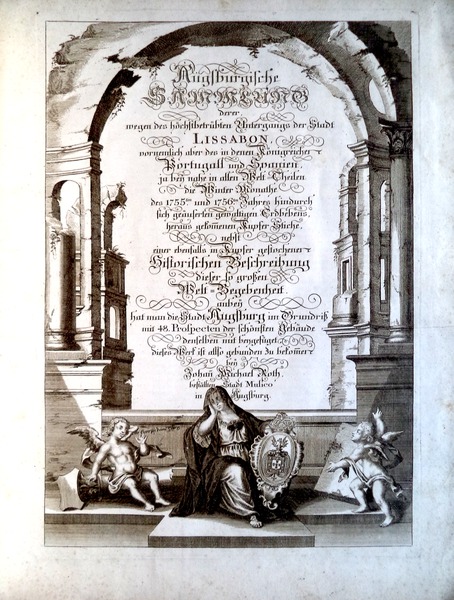 Augsburgische
SAMMLUNG
derer
wegen des höchstbetrübten Untergangs der Stadt
LISSABON,
vornemlich aber des in denen Königreichen
Portugall und Spanien,
ja bey nahe in allen Welt Theilen
die Winter Monathe
des 1755sten und 1756sten Jahres hindurch
sich geäuserten gewaltigen Erdbebens,
heraus gekomenen Kupfer Stiche,
nebst
einer ebenfalls in Kupfer gestochenen
Historischen Beschreibung
dieser so großen
Welt-Begebenheit.
anbey
hat man die Stadt Augsburg im Grundriß
mit 48. Prospecten der schönsten Gebäude
denselben mit beygefüget.
dieses Werk ist allso gebunden zu bekomen
bey
Johan Michael Roth,
bestellten Stadt Musico
in Augsburg.